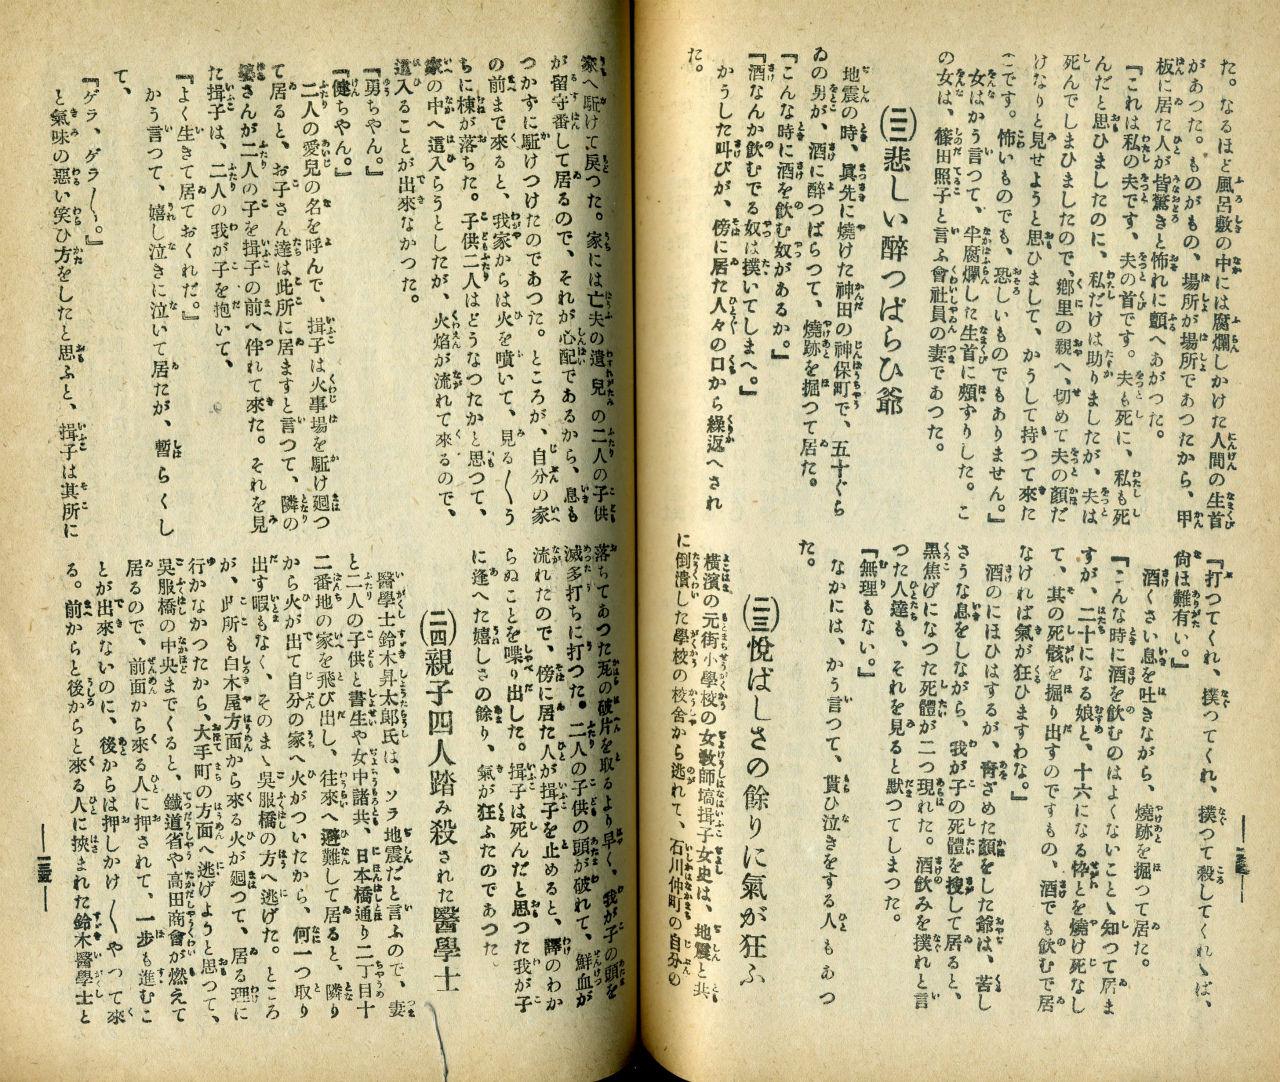 た。なるほど風呂敷の中には腐爛しかけた人間の生首
があつた。ものがもの、場所が場所であつたから、甲
板に居た人が皆驚きと怖れに顫へあがつた。
『これは私の夫です、夫の首です。夫も死に、私も死
んだと思ひましたのに、私だけは助りましたが、夫は
死んでしまひましたので、鄕里の親へ、切めて夫の顔だ
けなりと見せようと思ひまして、かうして持つて來た
こです。怖いものでも、恐しいものでもありません。』
女はかう言つて、半腐爛した生首に頰ずりした。こ
の女は、篠田照子と言ふ會社員の妻であつた。
(二二)悲しい醉つぱらひ爺
地震の時、眞先に燒けた神田の神保町で、五十ぐら
ゐの男が、酒に醉つぱらつて、燒跡を掘つて居た。
『こんな時に酒を飮む奴があるか。』
『酒なんか飮むでる奴は撲いてしまへ。』
かうした叫びが、傍に居た人々の口から繰返へされ
た。
『打つてくれ、撲つてくれ、撲つて殺してくれゝば、
尙ほ難有い。』
酒くさい息を吐きながら、燒跡を掘つて居た。
『こんな時に酒を飮むのはよくないことゝ知つて居ま
すが、二十になる娘と、十六になる悴とを燒け死なし
て、其の死骸を掘り出すのですもの、酒でも飮むで居
なければ氣が狂ひますわな。』
酒のにほひはするが、靑ざめた顔をした爺は、苦し
さうな息をしながら、我が子の死體を搜して居ると、
黑焦げになつた死體が二つ現れた。酒飮みを撲れと言
つた人達も、それを見ると默つてしまつた。
『無理もない。』
なかには、かう言つて、貰ひ泣きをする人もあつ
た。
(二三)悅ばしさの餘りに氣が狂ふ
橫濱の元街小學校の女敎師塙揖子女史は、地震と共
に倒潰した學校の校舍から逃れて、石川仲町の自分の
家へ駈けて戾つた。家には亡夫の遺兒の二人の子供
が留守番して居るので、それが心配であるから、息も
つかずに駈けつけたのであつた。ところが、自分の家
の前まで來ると、我家からは火を噴いて、見る〱う
ちに棟が落ちた。子供二人はどうなつたかと思つて、
家の中へ這入らうとしたが、火焰が流れて來るので、
這入ることが出來なかつた。
『勇ちやん。』
『健ちやん。』
二人の愛兒の名を呼んで、揖子は火事場を駈け廻つ
て居ると、お子さん達は此所に居ますと言つて、隣の
婆さんが二人の子を揖子の前へ伴れて來た。それを見
た揖子は、二人の我が子を抱いて、
『よく生きて居ておくれだ。』
かう言つて、嬉し泣きに泣いて居たが、暫らくし
て、
『ゲラ、ゲラ〱。』
と氣味の惡い笑ひ方をしたと思ふと、揖子は其所に
落ちてあつた瓦の破片を取るより早く、我が子の頭を
滅多打ちに打つた。二人の子供の頭が破れて、鮮血が
流れたので、傍に居た人が揖子を止めると、譯のわか
らぬことを喋り出した。揖子は死んだと思つた我が子
に逢へた嬉しさの餘り、氣が狂ふたのであつた。
(二四)親子四人踏み殺された醫學士
醫學士鈴木昇太郞氏は、ソラ地震だと言ふので、妻
と二人の子供と書生や女中諸共、日本橋通り二丁目十
二番地の家を飛び出し、往來へ避難して居ると、隣り
から火が出て自分の家へ火がついたから、何一つ取り
出す暇もなく、そのまゝ吳服橋の方へ逃げた。ところ
が、此所も白木屋方面から來る火が廻つて、居る理に
行かなかつたから、大手町の方面へ逃げようと思つて、
吳服橋の中央までくると、鐵道省や高田商會が燃えて
居るので、前面から來る人に押されて、一步も進むこ
とが出來ないのに、後からは押しかけ〱やつて來
る。前からと後からと來る人に挾まれた鈴木醫學士と